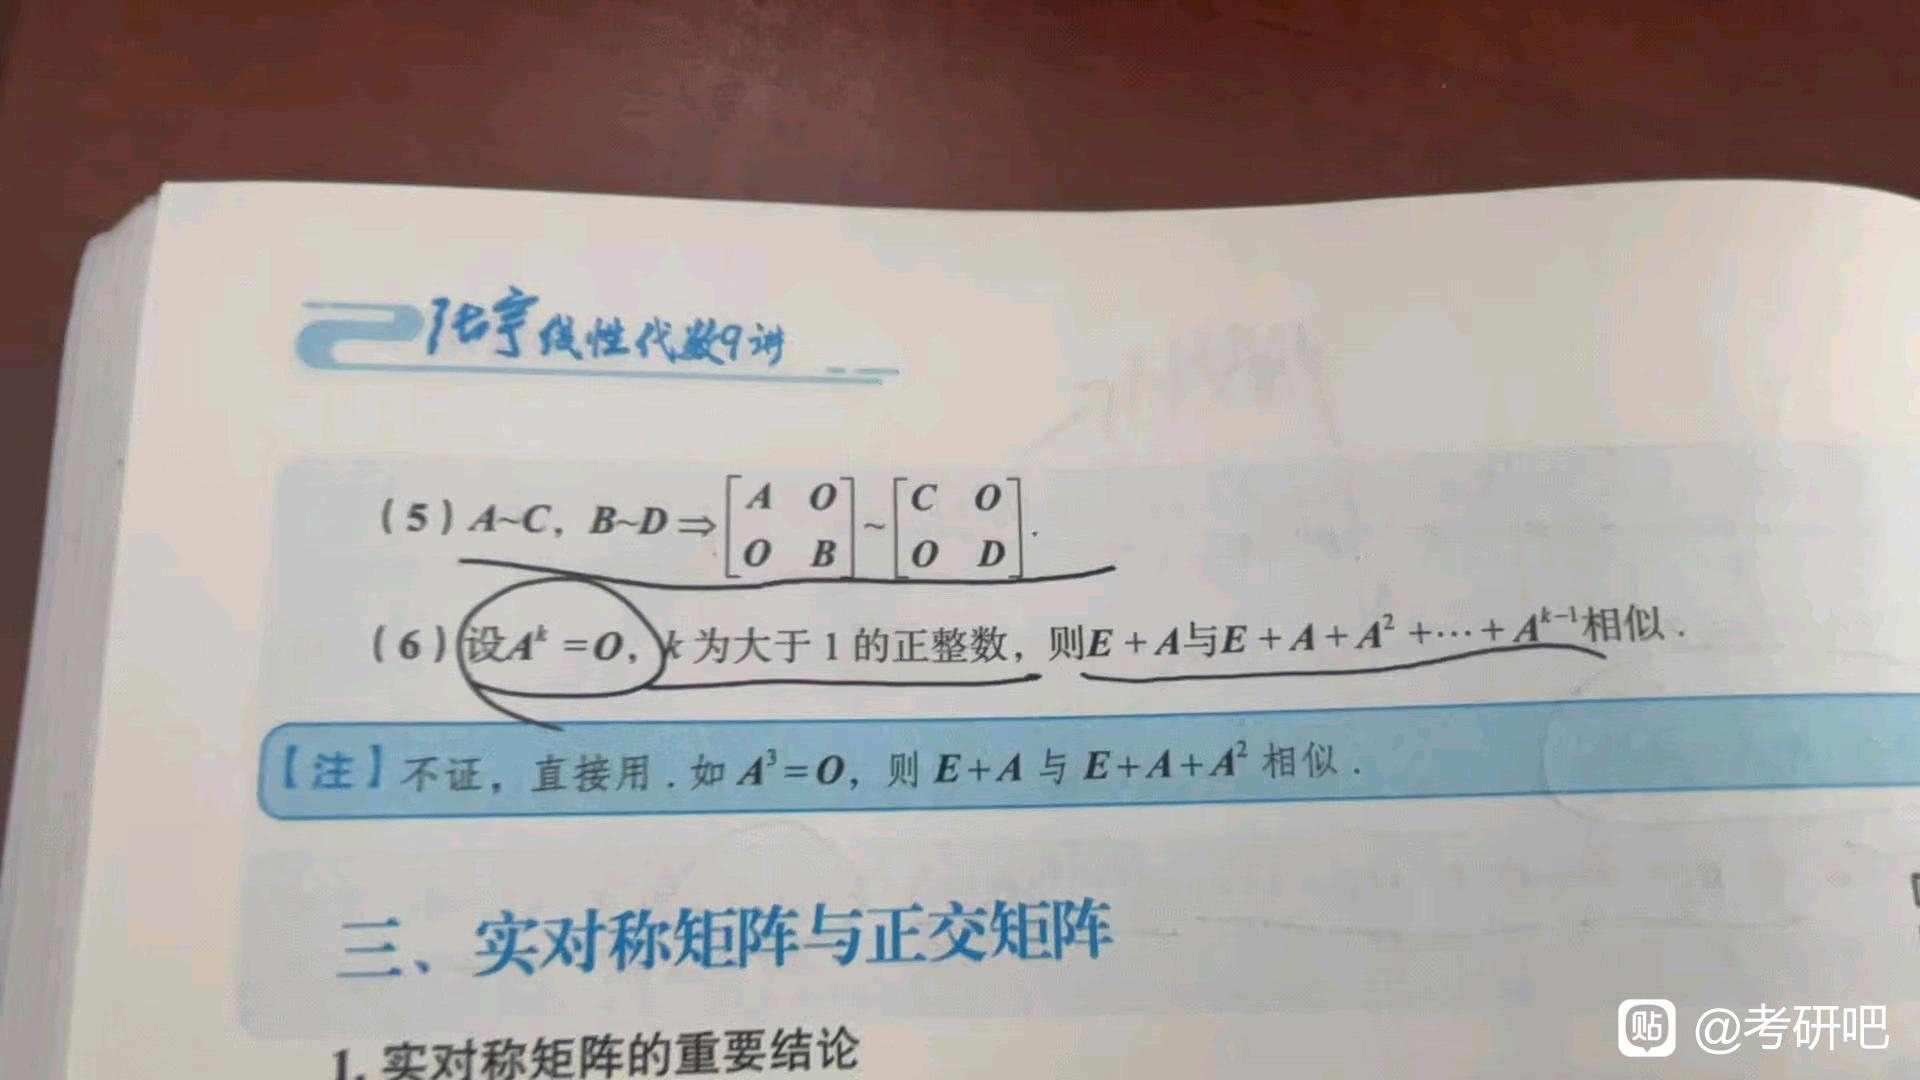 张宇线性代数9讲
(5) A~C, B~D⇒[A O; O B]~[C O; O D].
(6) 设Aᵏ=O, k为大于1的正整数, 则E+A与E+A+A²+⋯+Aᵏ⁻¹相似.
【注】不证, 直接用. 如A³=O, 则E+A与E+A+A²相似.
三、实对称矩阵与正交矩阵
1. 实对称矩阵的重要结论
贴 @考研吧